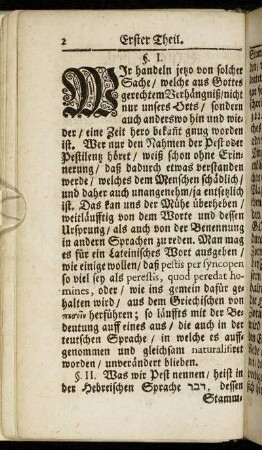 2 Erster Theil.
§. I.
WIr handeln jetzo von solcher
Sache / welche aus Gottes
gerechtem Verhängniß / nicht
nur unsers Orts / sondern
auch anderswo hin und wie-
der / eine Zeit hero bekañt gnug worden
ist. Wer nur den Nahmen der Pest oder
Pestilentz höret / weiß schon ohne Erin-
nerung / daß dadurch etwas verstanden
werde / welches dem Menschen schädlich /
und daher auch unangenehm / ja entsetzlich
ist. Das kan uns der Mühe überheben /
weitläufftig von dem Worte und dessen
Ursprung / als auch von der Benennung
in andern Sprachen zu reden. Man mag
es für ein Lateinisches Wort ausgeben /
wie einige wollen / daß pestis per syncopen
so viel sey als perestis, quod peredat ho-
mines, oder / wie ins gemein dafür ge-
halten wird / aus dem Griechischen von
herführen; so läuffts mit der Be-
deutung auff eines aus / die auch in der
teutschen Sprache / in welche es auff-
genommen und gleichsam naturalisiret
worden / unverändert blieben.
§. II. Was wir Pest nennen / heist in
der Hebreischen Sprache דבר, dessen
Stamm-